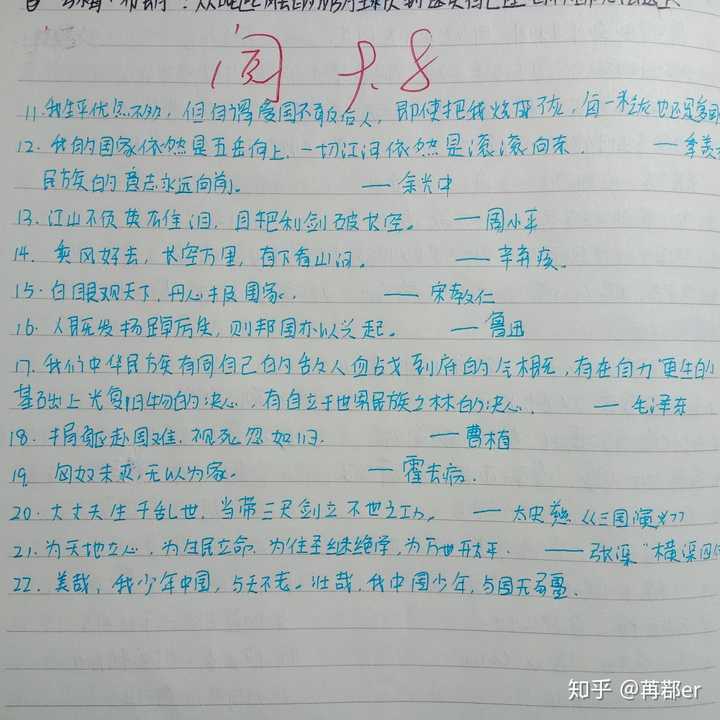 阅 9.8
11. 我生平优点不多，但自谓爱国不敢后人，即使把我烧成了灰，每一粒灰也还是爱国
12. 我的国家依然是五岳向上，一切江河依然是滚滚向东 ——季羡
民族的意志永远向前。 ——余光中
13. 江山不负英雄泪，且把利剑破长空。 ——周小平
14. 乘风好去，长空万里，直下看山河。 ——辛弃疾。
15. 白眼观天下，丹心报国家。 ——宋教仁
16. 人既发扬踔厉矣，则邦国亦以兴起。 ——鲁迅
17. 我们中华民族有同自己的敌人血战到底的气概，有在自力更生的
基础上光复旧物的决心，有自立于世界民族之林的决心。 ——毛泽东
18. 捐躯赴国难，视死忽如归。 ——曹植
19. 匈奴未灭，无以为家。 ——霍去病.
20. 大丈夫生于乱世，当带三尺剑立不世之功。 ——太史慈《三国演义》
21. 为天地立心，为生民立命，为往圣继绝学，为万世开太平. ——张深"横渠四
22. 美哉，我少年中国，与天不老。壮哉，我中国少年，与国无疆.
知乎 @苒郡er